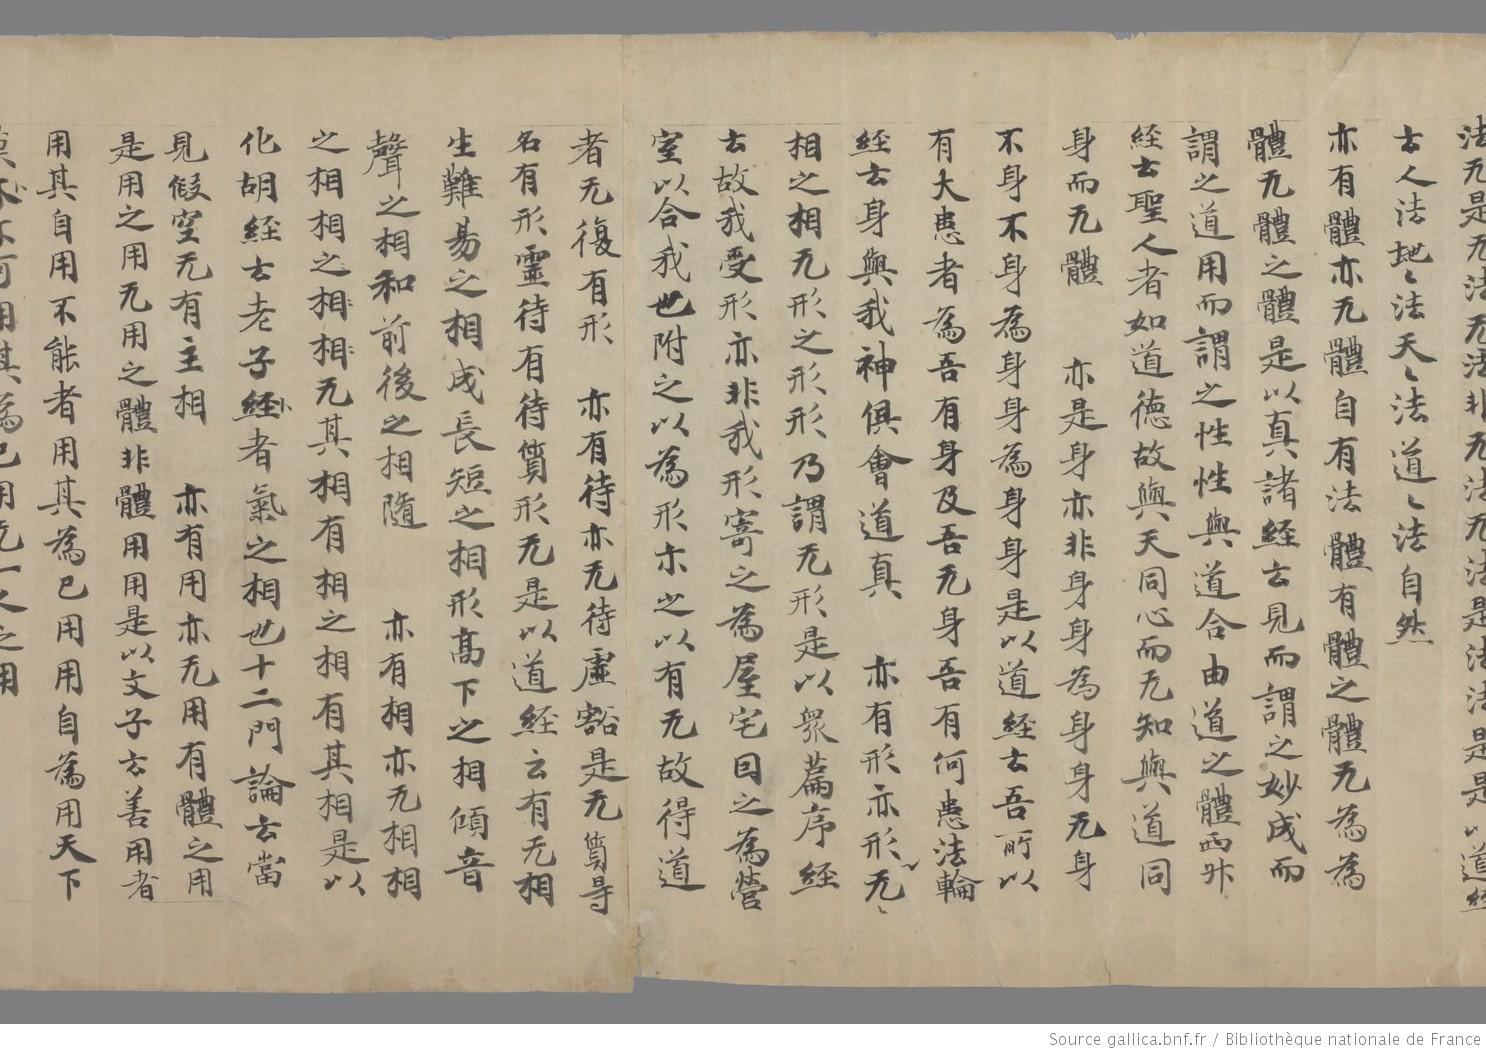 法无是无法无法非无法无法是法法是是以道經
云人法地〻法天〻法道〻法自然
亦有體亦无體自有法體有體之體无為為
體无體之體是以真諸經云見而謂之妙成而
謂之道用而謂之性性與道合由道之體
經云聖人者如道德故與天同心而无知與道同
身而无體 亦是身亦非身身為身身无身
不身不身為身身為身身是以道經云吾所以
有大患者為吾有身及吾无身吾有何患法輪
經云身與我神俱會道真 亦有形亦形无
相之相无形之形形乃謂无形是以眾篇序經
云故我受形亦非我形寄之為屋宅因之為營
室以合我也附之以為形示之以有无故得道
者无復有形 亦有待亦无待虛豁是无質㝵
名有形靈待有待質形无是以道經云有无相
生難易之相成長短之相形高下之相傾音
聲之相和前後之相隨 亦有相亦无相相
之相相之相相无其相有相之相有其相是以
化胡經云老子經者氣之相也十二門論云當
見假空无有主相 亦有用亦无用有體之用
是用之用无用之體非體用用是以文子云善用者
用其自用不能者用其為已用用自為用天下
莫不可用其為已用